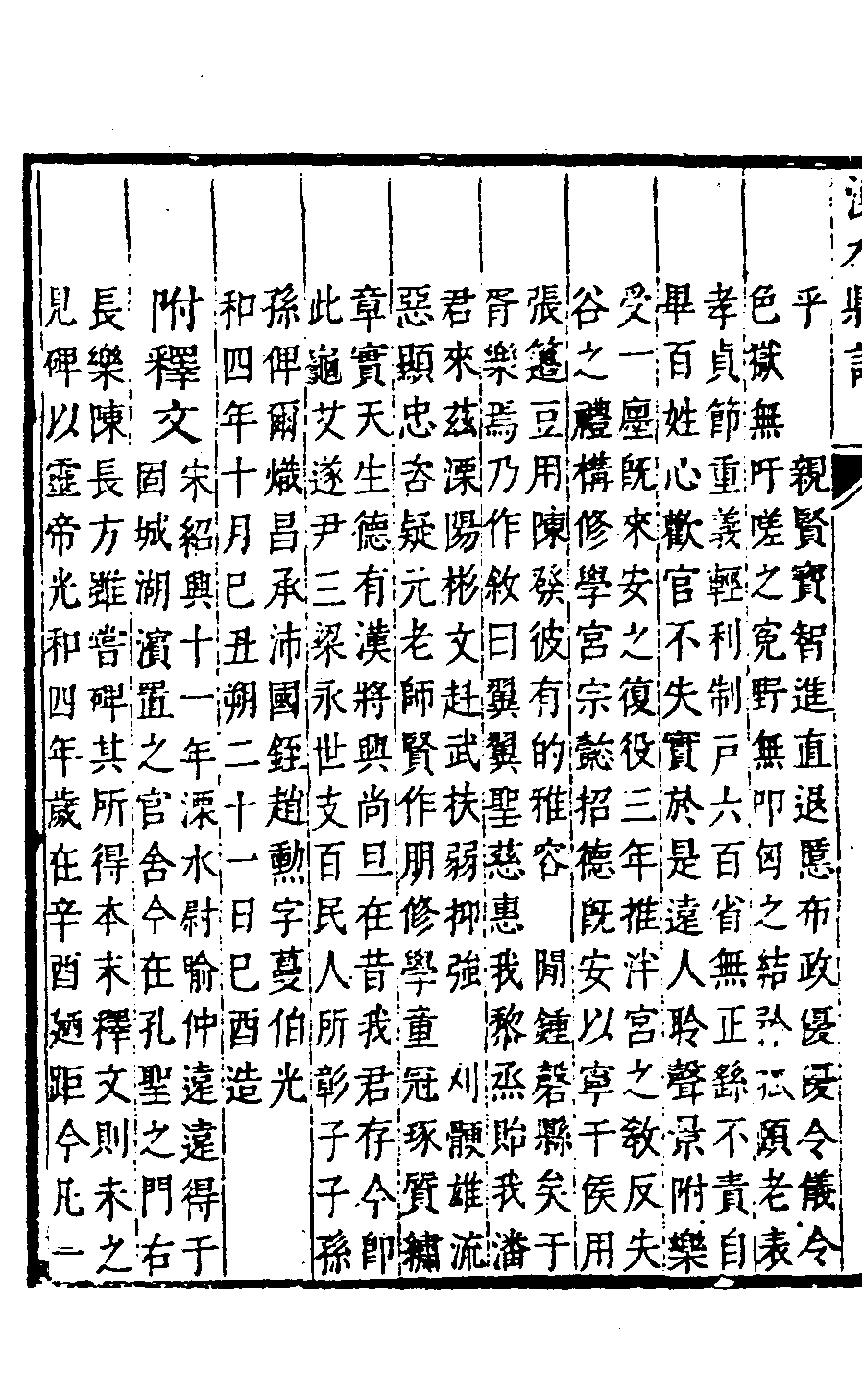 溧水縣記
乎 親賢寶智進直退慝布政優優令儀令
色獄無吁嗟之冤野無叩匈之結矜孤頤老表
孝貞節重義輕利制戸六百省無正繇不責自
畢百姓心歡官不失實於是遠人聆聲景附樂
受一廛既來安之復役三年推泮宮之教反失
谷之禮構修學宮宗懿招德既安以寧干侯用
張籩豆用陳發彼有的雅容 閒鍾磬縣矣于
胥樂焉乃作敘曰翼翼聖慈惠我黎烝貽我潘
君來茲溧陽彬文赳武扶弱抑強 刈䫀雄流
惡顯忠咨疑元老師賢作朋修學童冠琢質繡
章實天生德有漢將興尚旦在昔我君存今即
此龜艾遂尹三梁永世支百民人所彰子子孫
孫俾爾熾昌承沛國銍趙勳字蔓伯光
和四年十月己丑朔二十一日己酉造
附釋文 宋紹興十一年溧水尉喻仲遠遠得于
固城湖濱置之官舍今在孔聖之門右
長樂陳長方雖嘗碑其所得本末釋文則未之
見碑以靈帝光和四年歲在辛酉廼距今凡一